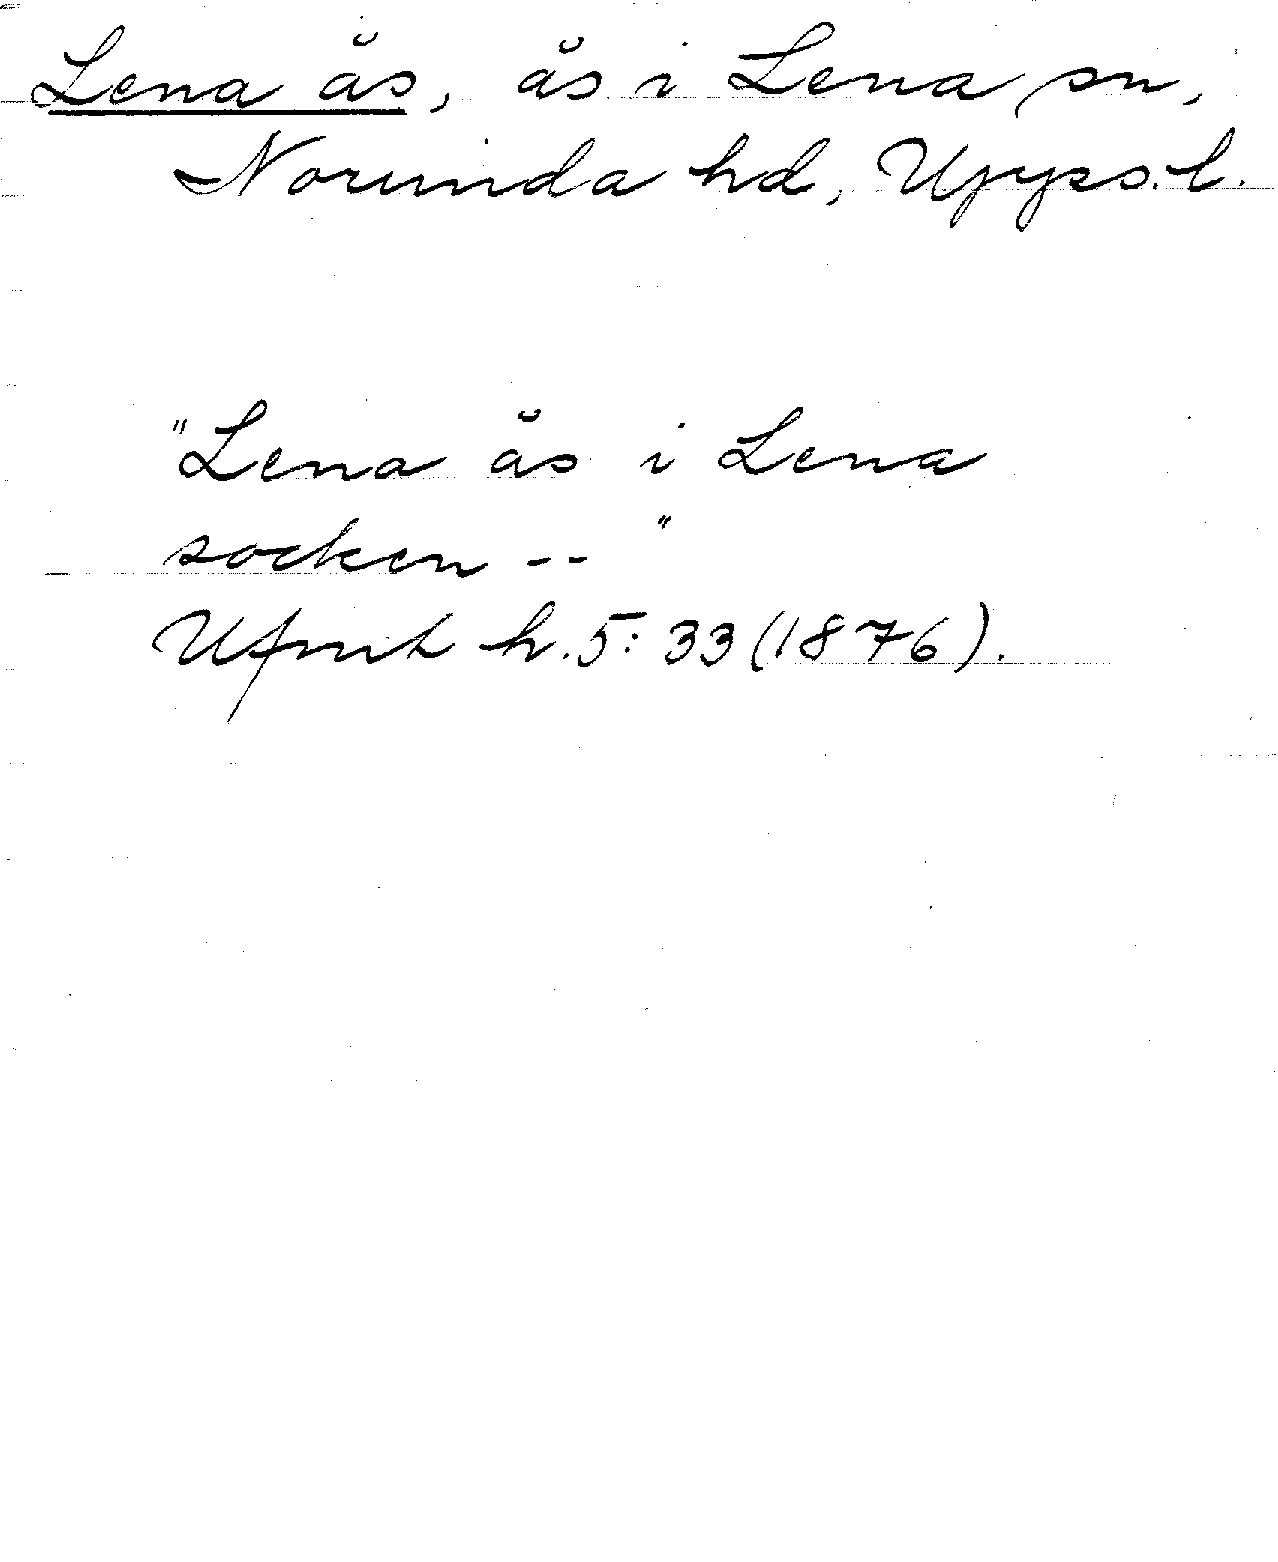 Lena ås, ås i Lena sn,
Norunda hd, Upps. l.
"Lena ås i Lena
socken -- "
Ufmt h. 5: 33 (1876).